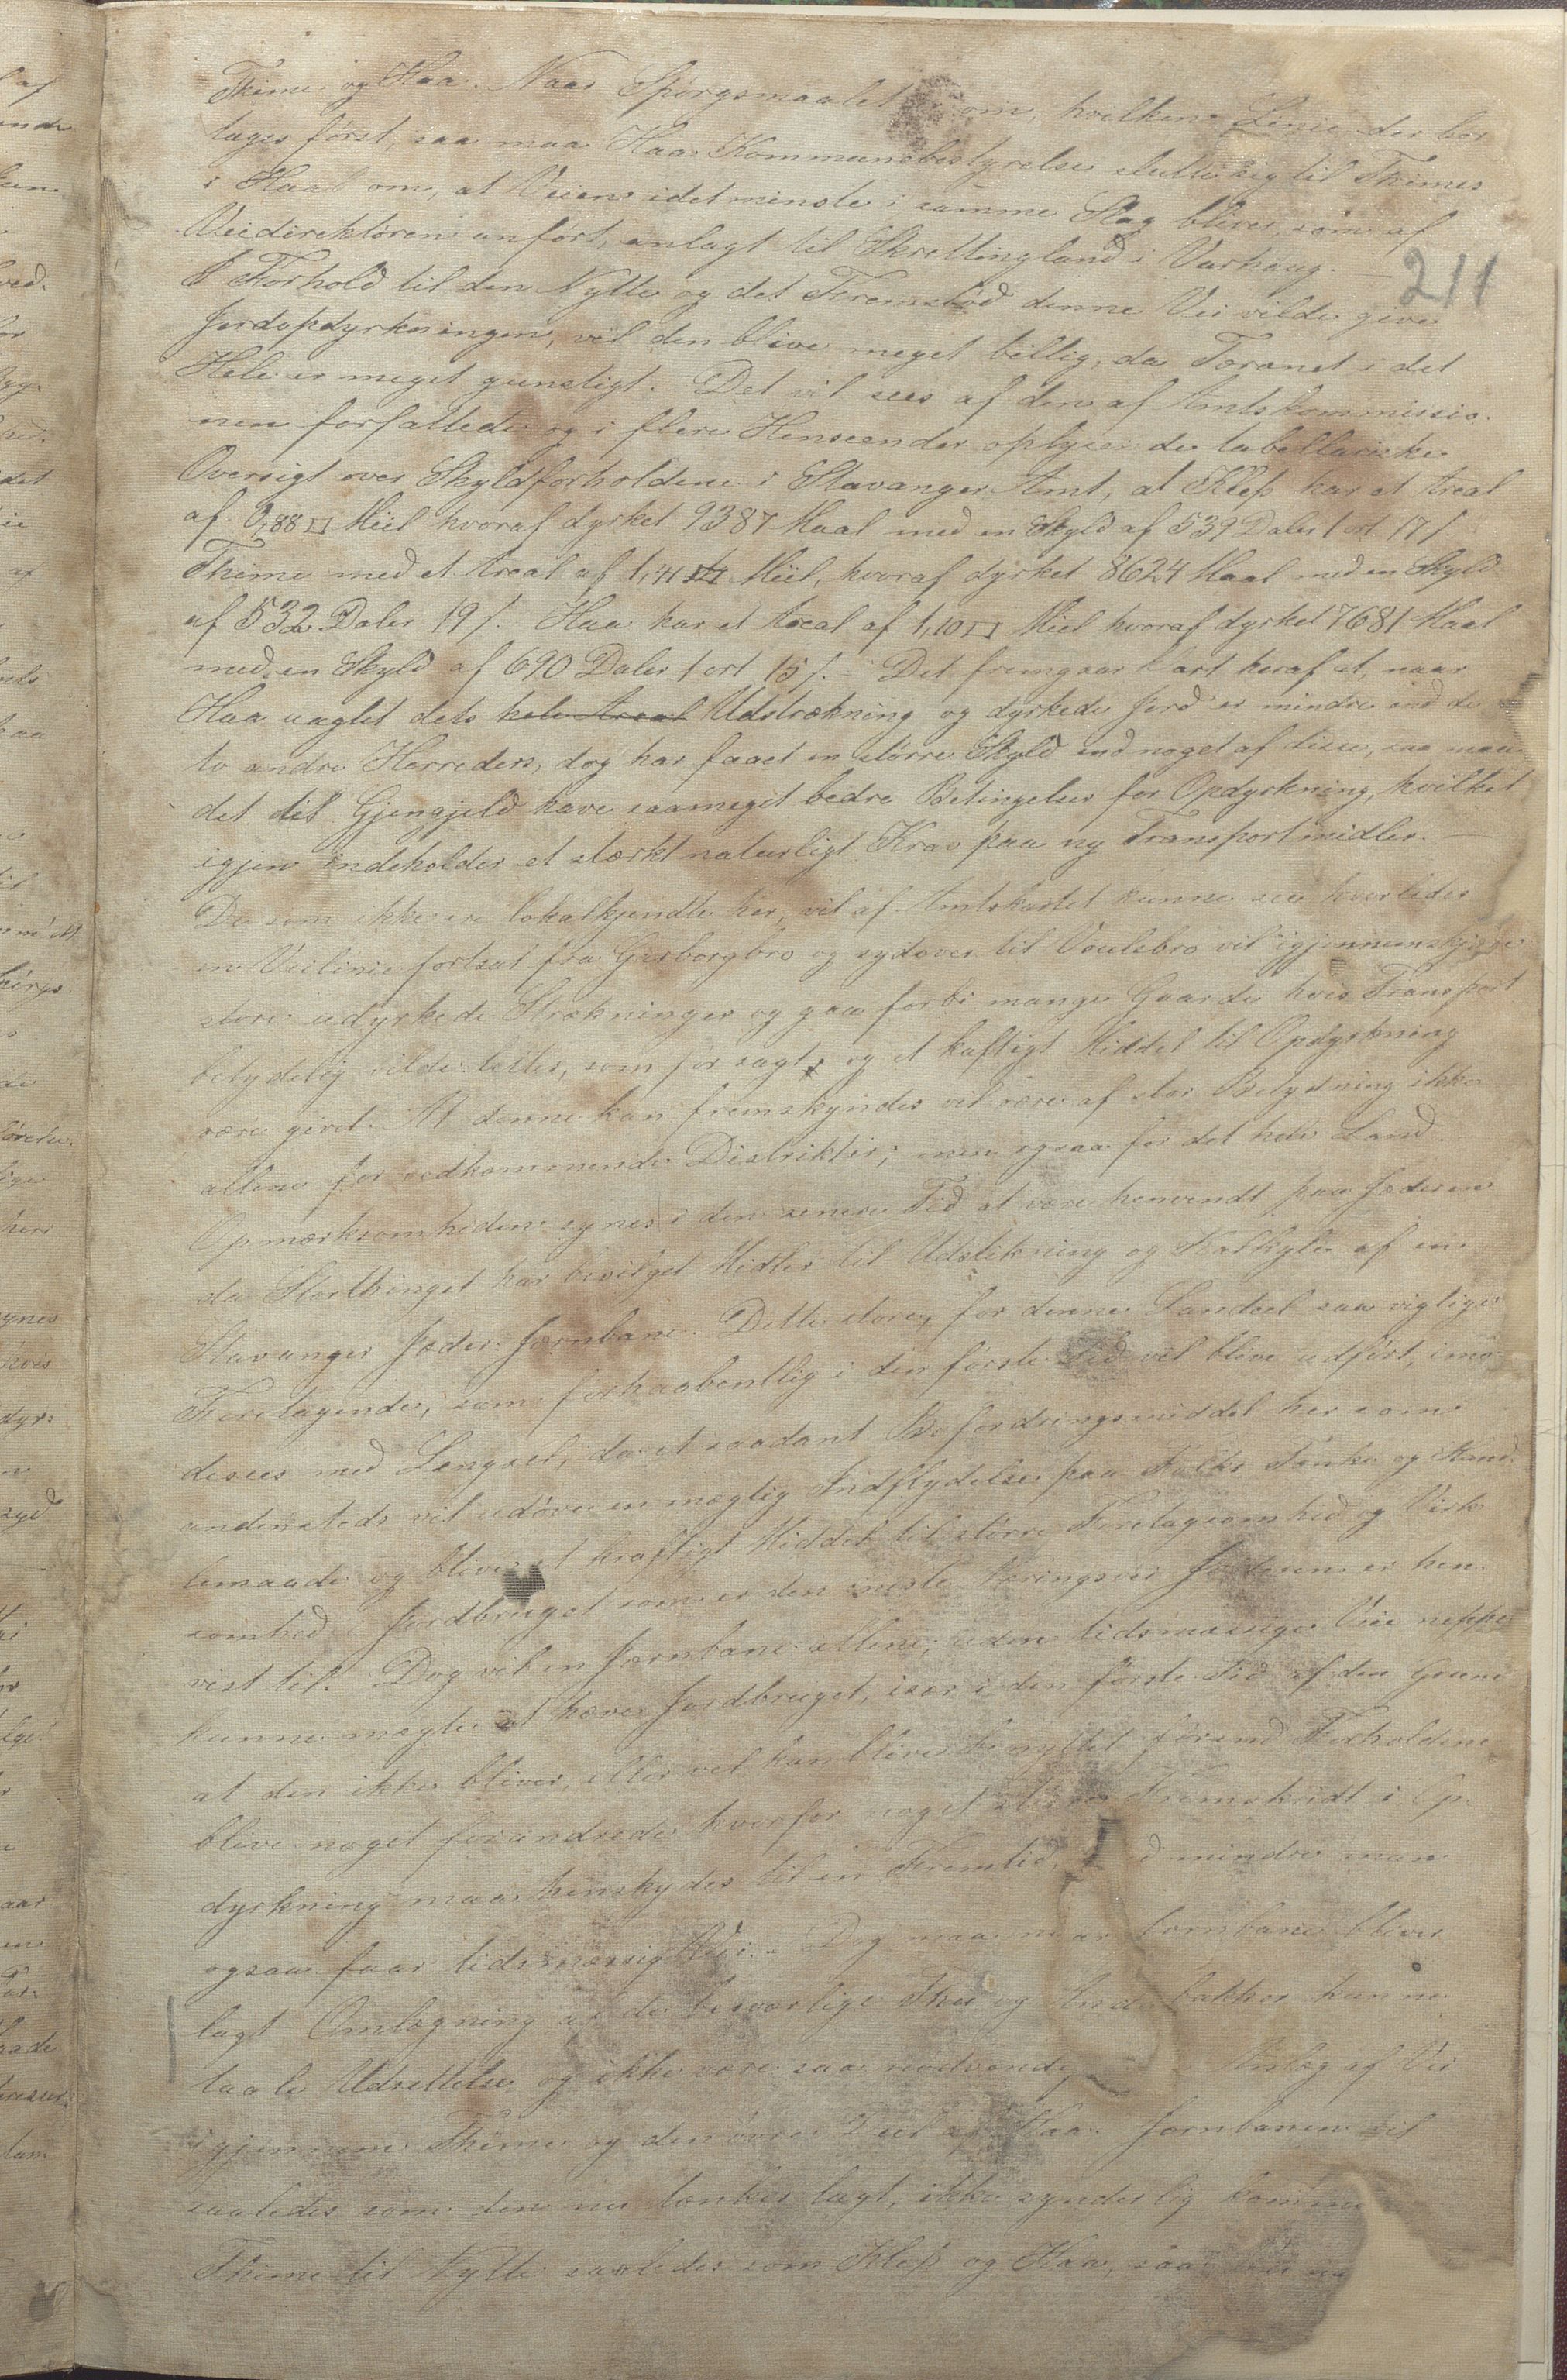 Thime og Haa. Naar Spørgsmaalet er om, hvilken Linie der bør
tages først, saa maa Haa Kommunebestyrelse slutte sig til Thimes
i Haab om, at Veien idetminste i samme Slag bliver, som af
Veidirektøren anført, anlagt til Skrettingland i Varhaug. —
211
I Forhold til den Nytte og det Fremstød denne Vei vilde give
Jordopdyrkningen, vil den blive meget billig, da Terænet i det
Hele er meget gunstigt. Det vil sees af den af Amtskommissio-
nen forfattede og i flere Henseender oplysende tabellariske
Oversigt over Skyldforholdene i Stavanger Amt, at Klep har et Areal
af 0,88 □ Miil hvoraf dyrket 9387 Maal med en Skyld af 539 Daler 1 ort 17 s.
Thime med et Areal af 1,41 □ Miil, hvoraf dyrket 8624 Maal med en Skyld
af 532 Daler 19 s. Haa har et Areal af 1,10 □ Miil hvoraf dyrket 7681 Maal
med en Skyld af 690 Daler 1 ort 15 s. Det fremgaar klart heraf at, naar
Haa uagtet dets hele Areal Udstrækning og dyrkede Jord er mindre end de
to andre Herreders, dog har faaet en større Skyld end noget af disse, saa maa
det til Gjengjeld have saameget bedre Betingelser for Opdyrkning, hvilket
igjen indeholder et stærkt naturligt Krav paa ny Transportmidler. —
De som ikke ere lokalkjendte her, vil af Amtskartet kunne see hvorledes
en Veilinie fortsat fra Gerborgbro og sydover til Voulebro vil igjennemskjære
store udyrkede Strækninger og gaa forbi mange Gaarde hvis Transport
betydelig vilde lettes, som før sagt, og et kraftigt Middel til Opdyrkning
være givet. At denne kan fremskyndes vil være af stor Betydning ikke
allene for vedkommende Distrikter; men ogsaa for det hele Land.
Opmærksomheden synes i den senere Tid at være henvendt paa Jæderen
da Storthinget har bevilget Midler til Udstikning og Kalkyle af en
Stavanger Jæder: Jærnbane. Dette store, for denne Landsel saa vigtige
Foretagende, som forhaabentlig i den første Tid vil blive udført, imø-
desees med Længsel, da et saadant Befordringsmiddel her som
andensteds vil udøve en mægtig Indflydelse paa Folks Tanke og Hand-
lemaade og bliver et kraftigt Middel til større Foretagsomhed og Virk-
somhed i Jordbruget som er den eneste Næringsvei Jæderen er hen-
vist til. Dog vil en Jærnbane allene, uden tidsmæssige Veie neppe
kunne mægte at hæve Jordbruget, især i den første Tid af den Grund
at den ikke bliver, eller vel kan blive benyttet førend Forholdene
blive noget forandrede hvorfor noget større Fremskridt i Op-
dyrkning maa henskydes til en Fremtid, mindre man
ogsaa faar tidsmæssig Vei. - Dog maa naar Jærnbane bliver
lagt Omlægning af de besværlige Thu og Anda bakker kunne
taale Udsettelse og ikke være saa nødvendig Anlæg af Vei
igjennem Thime og den øvre Deel af Haa. Jærnbanen vil
saaledes som den nu tænkes lagt, ikke synderlig komme
Thime til Nytte saaledes som Klep og Haa, saa